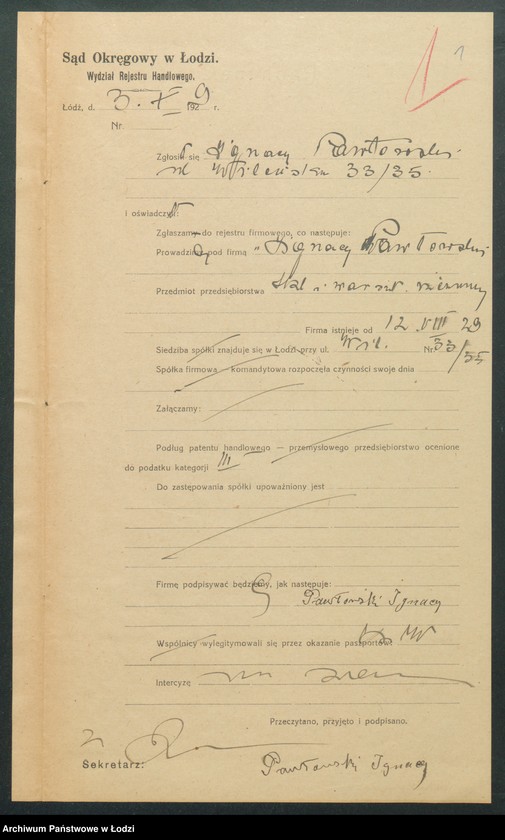 1 1
Sąd Okręgowy w Łodzi.
Wydział Rejestru Handlowego.
Łódź, d. 3. X 1929 r.
Nr.
Zgłosił się Ignacy Pawłowski.
ul Wileńska 33/35.
i oświadczył:
Zgłaszam do rejestru firmowego, co następuje:
Prowadzę pod firmą „Ignacy Pawłowski
Przedmiot przedsiębiorstwa
Firma istnieje od 12 VIII 29
Siedziba spółki znajduje się w Łodzi przy ul. Wil. Nr. 33/35
Spółka firmowa — komandytowa rozpoczęła czynności swoje dnia
Załączamy:
Podług patentu handlowego — przemysłowego przedsiębiorstwo ocenione
do podatku kategorji III
Do zastępowania spółki upoważniony jest
Firmę podpisywać będziemy, jak następuje:
Pawłowski Ignacy
Wspólnicy wylegitymowali się przez okazanie paszportów:
Intercyzę
Przeczytano, przyjęto i podpisano.
Sekretarz:
Pawłowski Ignacy
Archiwum Państwowe w Łodzi